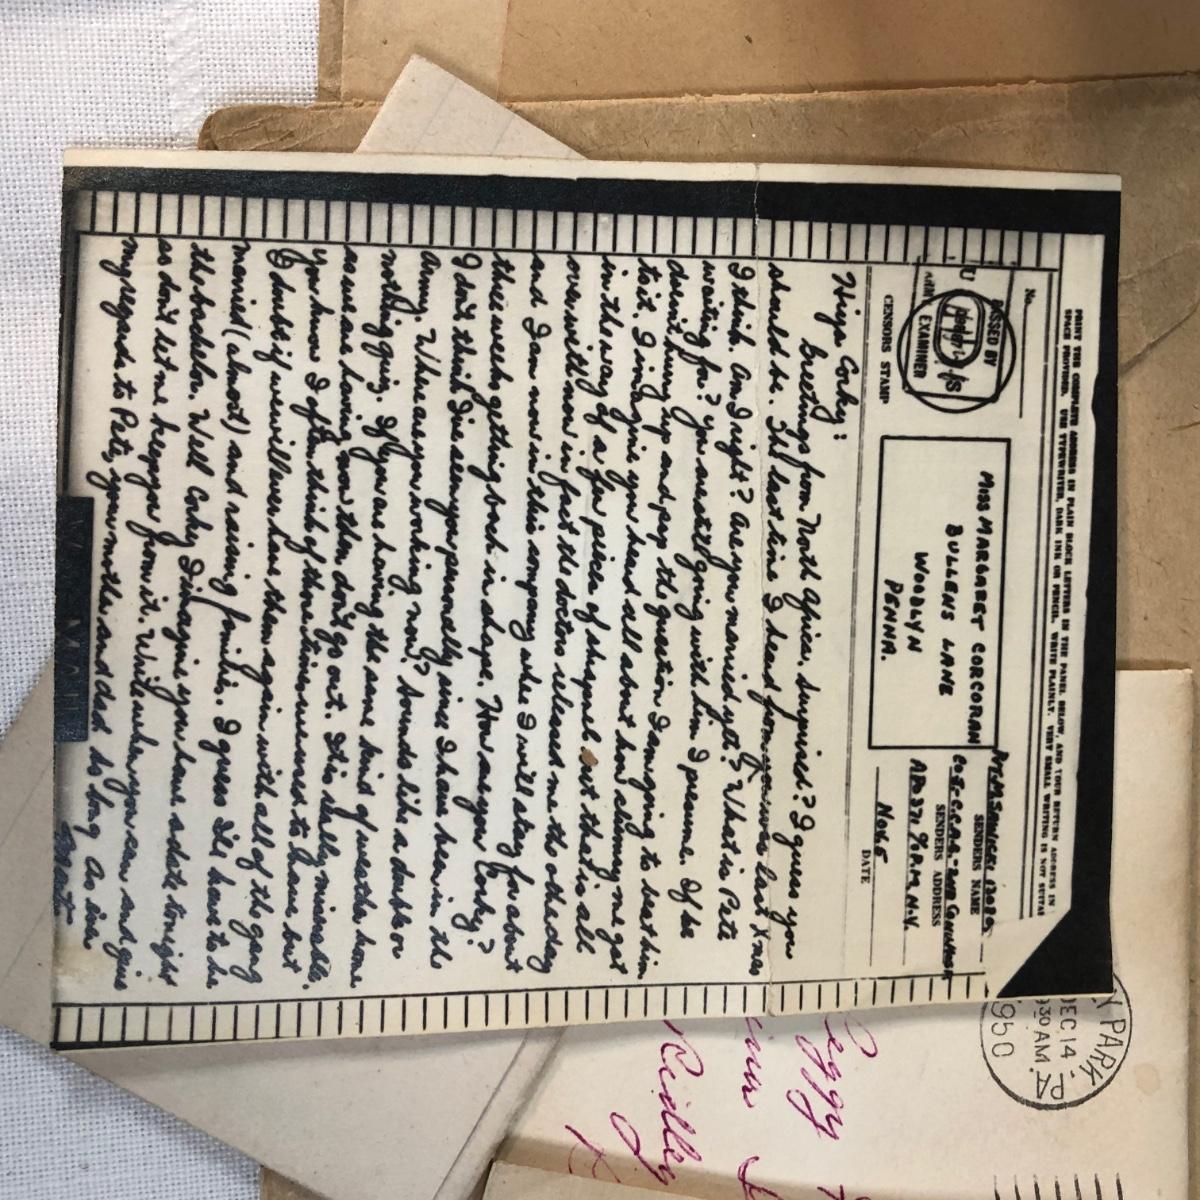 PRINT THE COMPLETE ADDRESS IN PLAIN BLOCK LETTERS IN THE PANEL BELOW, AND YOUR RETURN ADDRESS IN
SPACE PROVIDED. USE TYPEWRITER, DARK INK OR PENCIL. WRITE PLAINLY. VERY SMALL WRITING IS NOT SUITA
No.
PASSED BY
U
EXAMINER
CENSORS STAMP
MISS MARGARET CORCORAN
BULLENS LANE
WOODLYN
PENNA.
SENDERS NAME
SENDERS ADDRESS
APO 371 % P.M. N.Y.
Nov. 5
DATE
Hiya Corky:
Greetings from North Africa. Surprised? I guess you
should be. The last time I heard from you was last Xmas
I think. Am I right? Are you married yet? What is Pete
waiting for? You are still going with him I presume. If he
doesn't hurry up and pop the question I am going to beat him
to it. I imagine you heard all about how already me got
in the way of a few pieces of shrapnel but that is all
over with now in fact the doctors released me the other day
and I am now in this company where I will stay for about
three weeks getting back in shape. How are you Corky?
I don't think I've seen you personally since I have been in the
Army. Where are you working now? Sounds like a double or
nothing going. If you are having the same kind of weather home
as we are having now then don't go out. It is really miserable.
You know I often think of those times we used to have but
I doubt if we will ever have them again with all of the gang
married (almost) and raising families. I guess I'll have to be
the bachelor. Well Corky I imagine you have a date tonight
so don't let me keep you from it. Write when you can and give
my regards to Pete, your mother and dad. So long. As ever
Mat
V-MAIL
Y PARK
DEC. 14
930 AM
PA.
1950
Peggy
Ridley